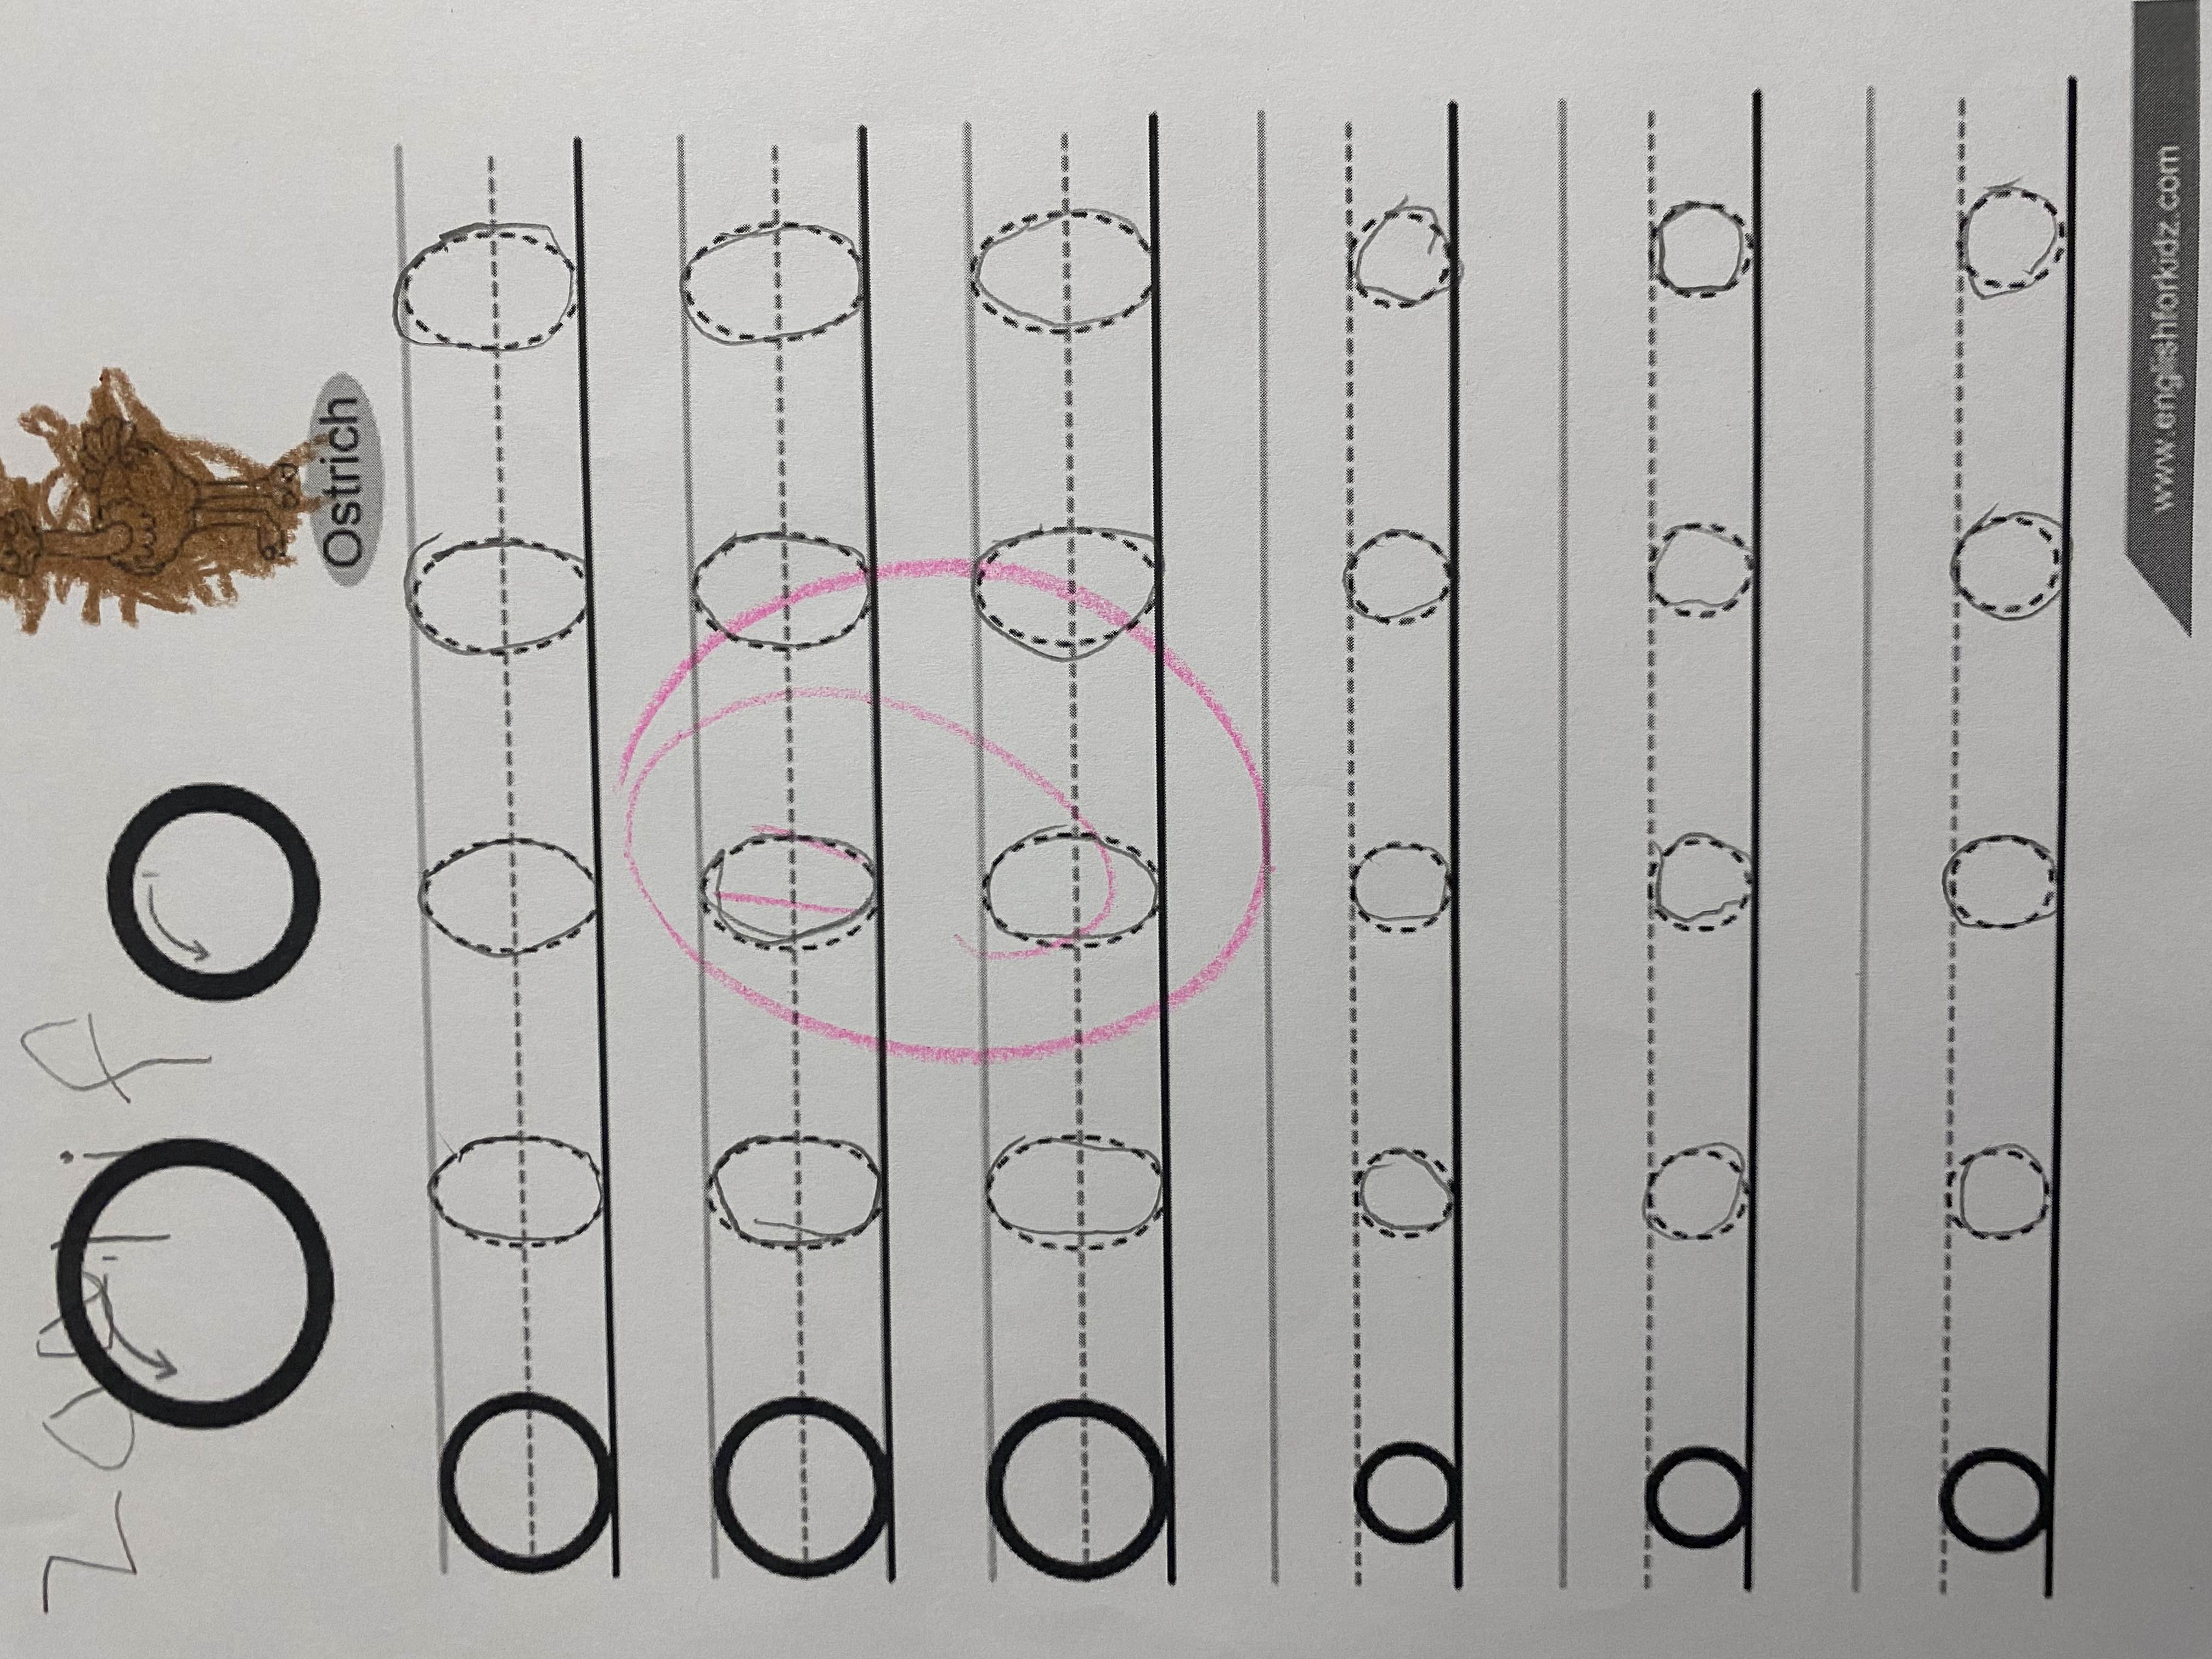 O o
Ostrich
O O O O O
O O O O O
O O O O O
o o o o o
o o o o o
o o o o o
www.englishforkidz.com